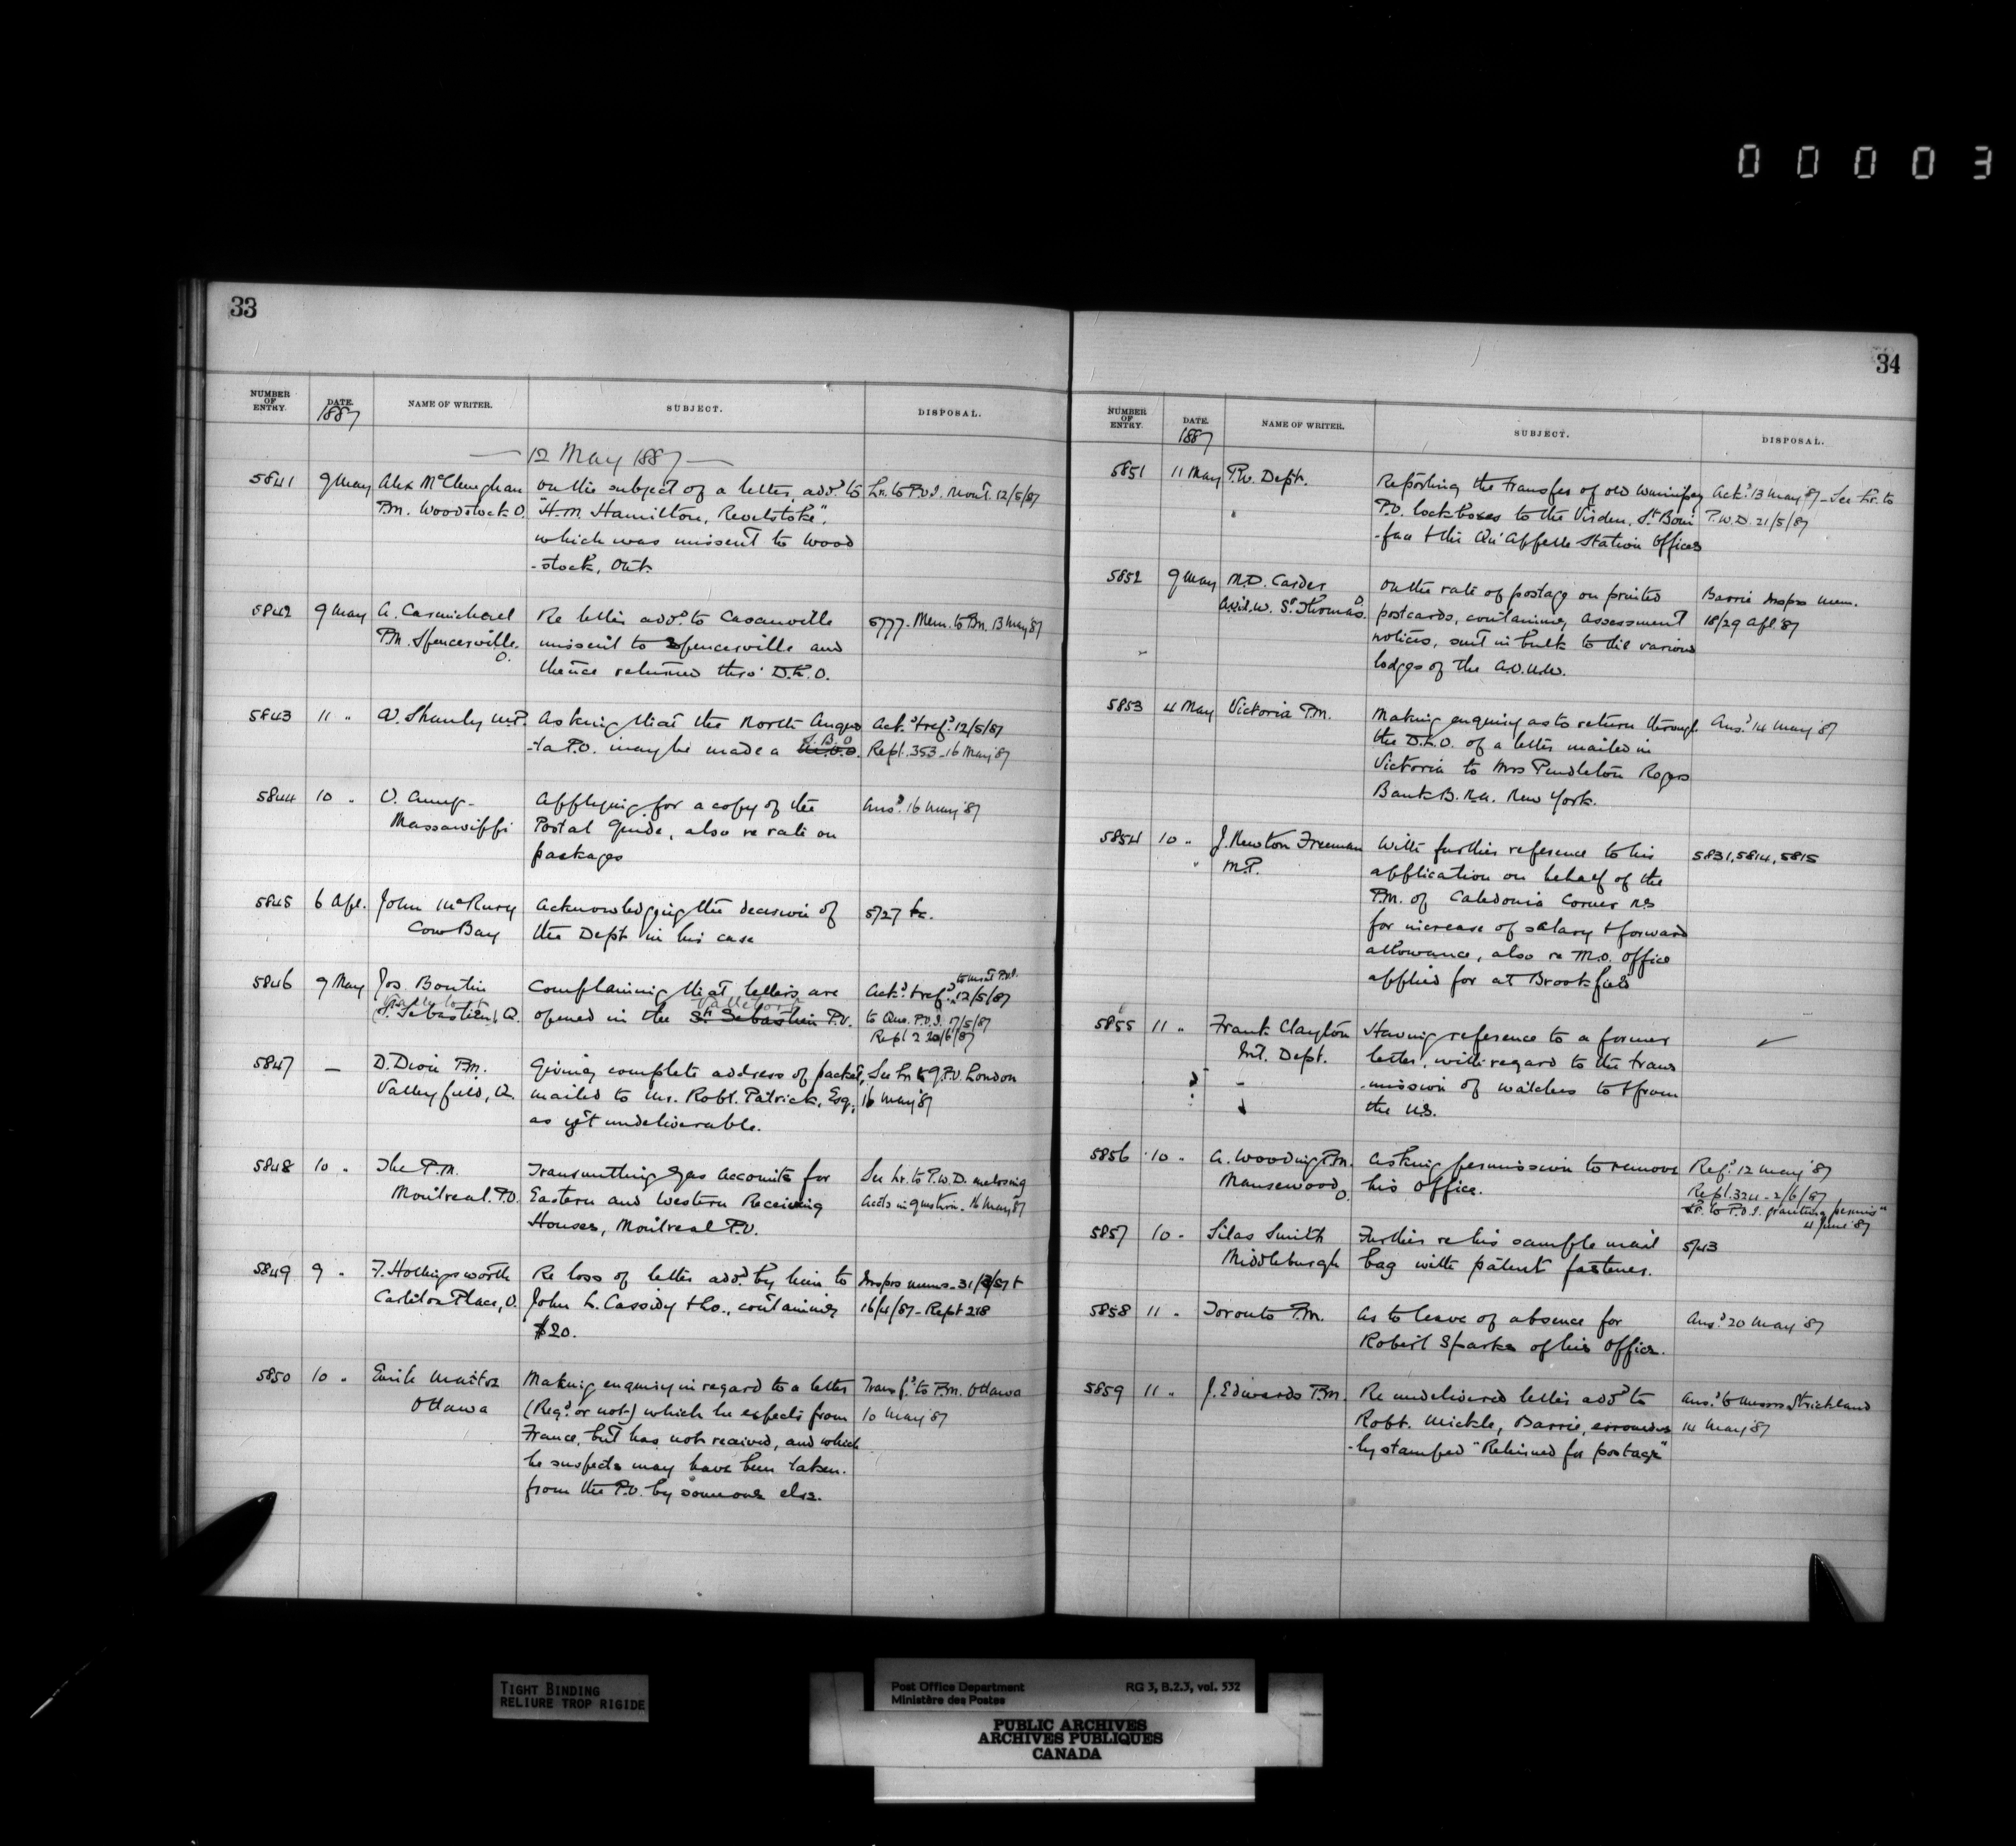 00003
33
NUMBER OF ENTRY.
DATE.
NAME OF WRITER.
SUBJECT.
DISPOSAL.
1887
12 May 1887
5841 9 May Alex McClenaghan On the subject of a letter, add.d to Lr. to P.O.I. Mont. 12/5/87
P.M. Woodstock O. "H.M. Hamilton, Revelstoke",
which was missent to Wood
-stock, Ont.
5842 9 May A. Carmichael Re letter add.d to Casanville 5777. Mem. to Bn. 13 May '87
P.M. Spencerville. O. missent to Spencerville and
thence returned thro' D.L.O.
5843 11 " W. Shanly M.P. Asking that the North Augus Ack.d & ref.d 12/5/87
-ta P.O. may be made a M.O.O. S.B.O Rept. 353 - 16 May '87
5844 10 " Applying for a copy of the Ans.d 16 May '87
Massawippi Postal Guide, also re rate on
packages
5845 6 Apl. John McRury Acknowledging the decision of 5727 &c.
Cow Bay the Dept. in his case
5846 9 May Jos. Boutin Complaining that letters are Ack.d & ref.d to Mont P.O.I. 12/5/87
St. Sebastien, Q. opened in the St. Sebastien P.O. to Que. P.O.I. 17/5/87
Rept 2 20/6/87
5847 — D. Dion P.M. Giving complete address of packet, See Lr to G.P.O. London
Valleyfield, Q. mailed to Mr. Robt. Patrick, Esq., 16 May '87
as yet undeliverable.
5848 10 " The P.M. Transmitting Gas Accounts for See Lr. to P.W.D. enclosing
Montreal. P.O. Eastern and Western Receiving Accts in question. 16 May '87
Houses, Montreal P.O.
5849 9 " F. Hollingsworth Re loss of letter add.d by him to Insprs mems - 31/3/87 &
Carleton Place, O. John L. Cassidy & Co., containing 16/4/87 - Rept 218
$20.
5850 10 " Emile Making enquiry in regard to a letter Transf.d to P.M. Ottawa
Ottawa (Reg.d or not) which he expects from 10 May '87
France, but has not received, and which
he suspects may have been taken
from the P.O. by someone else.
34
NUMBER OF ENTRY.
DATE.
NAME OF WRITER.
SUBJECT.
DISPOSAL.
1887
5851 11 May P.W. Dept. Reporting the transfer of old Winnipeg Ack.d 13 May '87 - See Lr. to
P.O. lock boxes to the Virden, St Boni P.W.D. 21/5/87
-face & the Qu'Appelle Station Offices
5852 9 May M.D. Carder On the rate of postage on printed Barrie Insprs Mem.
St. Thomas. O postcards, containing Assessment 18/29 Apl. '87
notices, sent in bulk to the various
lodges of the A.O.U.W.
5853 4 May Victoria P.M. Making enquiry as to return through Ans.d 14 May '87
the D.L.O. of a letter mailed in
Victoria to Mrs Pendleton Rogers
Bank B.N.A. New York.
5854 10 " J. Newton Freeman With further reference to his 5831, 5814, 5815
M.P. application on behalf of the
P.M. of Caledonia Corner NS
for increase of salary & forward
allowance, also re M.O. Office
applied for at Brookfield
5855 11 " Frank Clayton Having reference to a former
Int. Dept. letter, with regard to the trans
-mission of watches to & from
the U.S.
5856 10 " A. Wooding P.M. Asking permission to remove Ref.d 12 May '87
Mansewood O. his Office. Rept. 324 - 2/6/87
Lr. to P.O.I. granting permis"
4 June '87
5857 10 " Silas Smith Further re his sample mail 5743
Middleburgh bag with patent fastener.
5858 11 " Toronto P.M. As to leave of absence for Ans.d 20 May '87
Robert Sparks of his Office.
5859 11 " J. Edwards P.M. Re undelivered letter add.d to Ans.d to Messrs Strickland
Robt. Mickle, Barrie, erroneous 14 May '87
-ly stamped "Returned for postage"
TIGHT BINDING
RELIURE TROP RIGIDE
Post Office Department RG 3, B.2.3, vol. 532
Ministère des Postes
PUBLIC ARCHIVES
ARCHIVES PUBLIQUES
CANADA